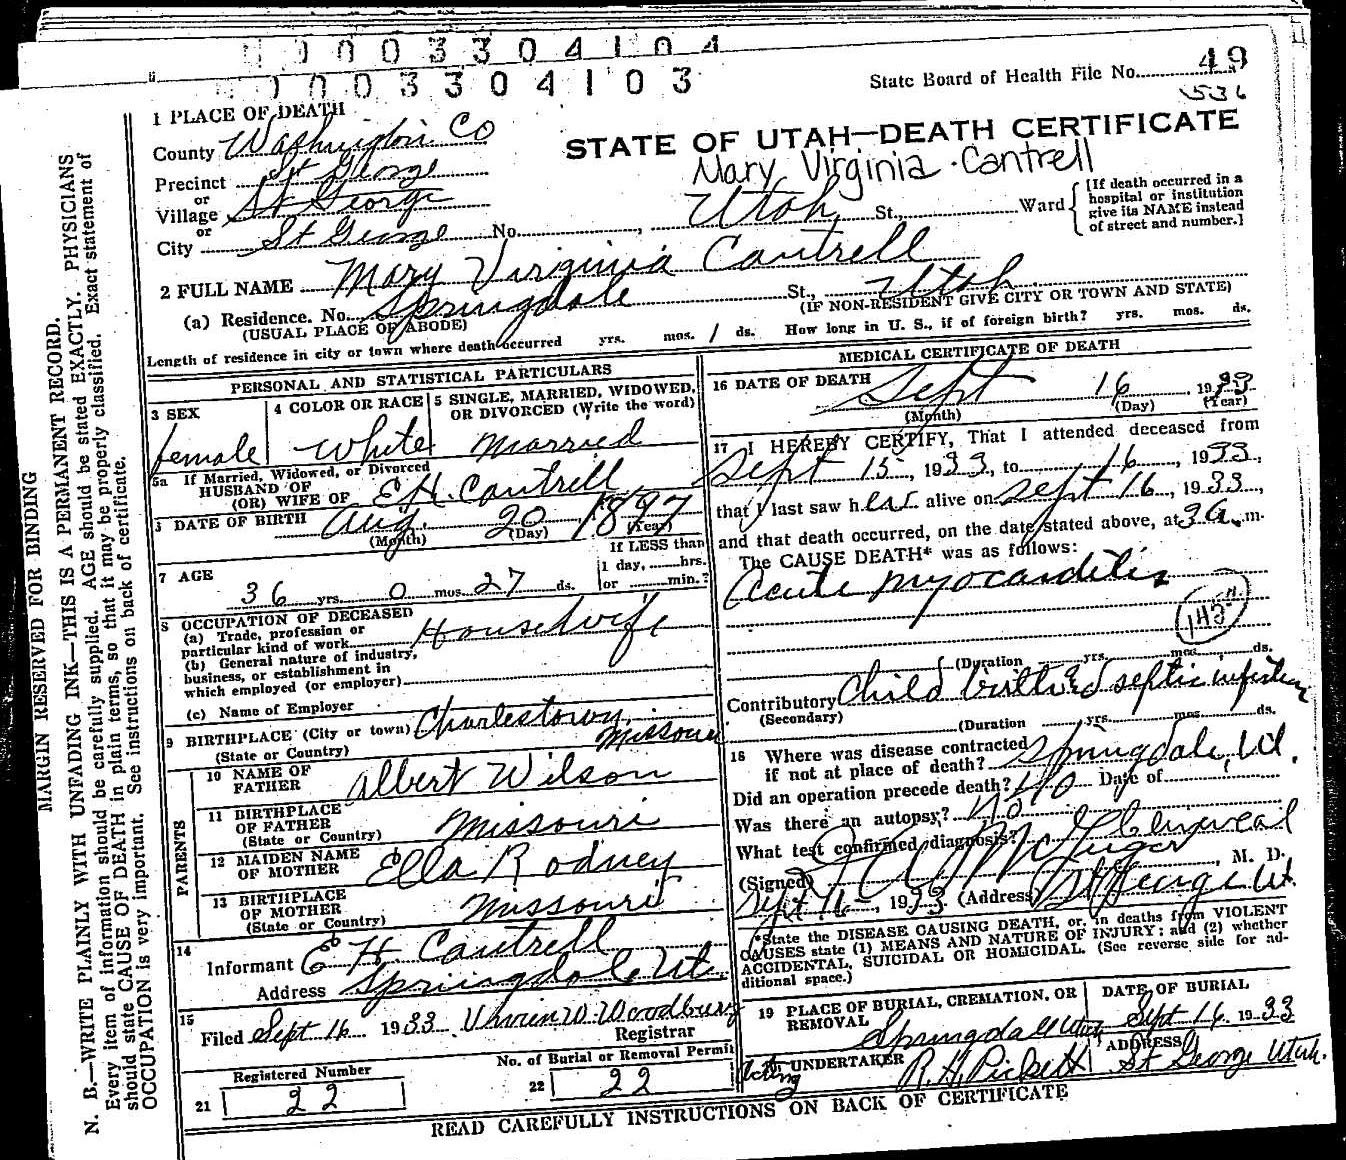 0003304104
0003304103
State Board of Health File No. 49
536
1 PLACE OF DEATH
STATE OF UTAH—DEATH CERTIFICATE
Mary Virginia Cantrell
County Washington Co
Precinct St George
or
Village St George
or
City St George No. , Utah, St., Ward
[If death occurred in a
hospital or institution
give its NAME instead
of street and number.]
2 FULL NAME Mary Virginia Cantrell
(a) Residence. No. Springdale St., Utah
(USUAL PLACE OF ABODE)
(IF NON-RESIDENT GIVE CITY OR TOWN AND STATE)
Length of residence in city or town where death occurred yrs. mos. 1 ds. How long in U. S., if of foreign birth? yrs. mos. ds.
PERSONAL AND STATISTICAL PARTICULARS
3 SEX
female
4 COLOR OR RACE
White
5 SINGLE, MARRIED, WIDOWED,
OR DIVORCED (Write the word)
Married
5a If Married, Widowed, or Divorced
HUSBAND OF
(OR) WIFE OF E.H. Cantrell
DATE OF BIRTH Aug. 20 1897
(Month) (Day) (Year)
7 AGE
36 yrs. 0 mos. 27 ds.
If LESS than
1 day, hrs.
or min.?
8 OCCUPATION OF DECEASED
(a) Trade, profession or
particular kind of work Housewife
(b) General nature of industry,
business, or establishment in
which employed (or employer)
(c) Name of Employer
9 BIRTHPLACE (City or town) Charlestown,
(State or Country) Missouri
PARENTS
10 NAME OF
FATHER Albert Wilson
11 BIRTHPLACE
OF FATHER
(State or Country) Missouri
12 MAIDEN NAME
OF MOTHER Ella Rodney
13 BIRTHPLACE
OF MOTHER
(State or Country) Missouri
14
Informant E H. Cantrell
Address Springdale Ut.
15
Filed Sept 16 1933 Woodbury
Registrar
Registered Number
21 22
No. of Burial or Removal Permit
22 22
MEDICAL CERTIFICATE OF DEATH
16 DATE OF DEATH Sept 16, 1933
(Month) (Day) (Year)
17 I HEREBY CERTIFY, That I attended deceased from
Sept 15, 1933, to 16, 1933,
that I last saw her alive on Sept 16, 1933,
and that death occurred, on the date stated above, at 3 a. m.
The CAUSE DEATH* was as follows:
Acute myocarditis
(Duration yrs. mos. ds.
Contributory Child birth and septic infection
(Secondary)
(Duration yrs. mos. ds.
18 Where was disease contracted
if not at place of death? Springdale, Ut.
Did an operation precede death? No Date of
Was there an autopsy? No
What test confirmed diagnosis?
(Signed) , M. D.
Sept 16, 1933 (Address) St George Ut.
*State the DISEASE CAUSING DEATH, or, in deaths from VIOLENT
CAUSES state (1) MEANS AND NATURE OF INJURY; and (2) whether
ACCIDENTAL, SUICIDAL OR HOMICIDAL. (See reverse side for ad-
ditional space.)
19 PLACE OF BURIAL, CREMATION, OR
REMOVAL Springdale Utah
DATE OF BURIAL
Sept 16, 1933
Acting UNDERTAKER
R. H. Pickett
ADDRESS
St George Utah.
READ CAREFULLY INSTRUCTIONS ON BACK OF CERTIFICATE
MARGIN RESERVED FOR BINDING
N. B.—WRITE PLAINLY WITH UNFADING INK—THIS IS A PERMANENT RECORD.
Every item of information should be carefully supplied. AGE should be stated EXACTLY. PHYSICIANS
should state CAUSE OF DEATH in plain terms, so that it may be properly classified. Exact statement of
OCCUPATION is very important. See instructions on back of certificate.